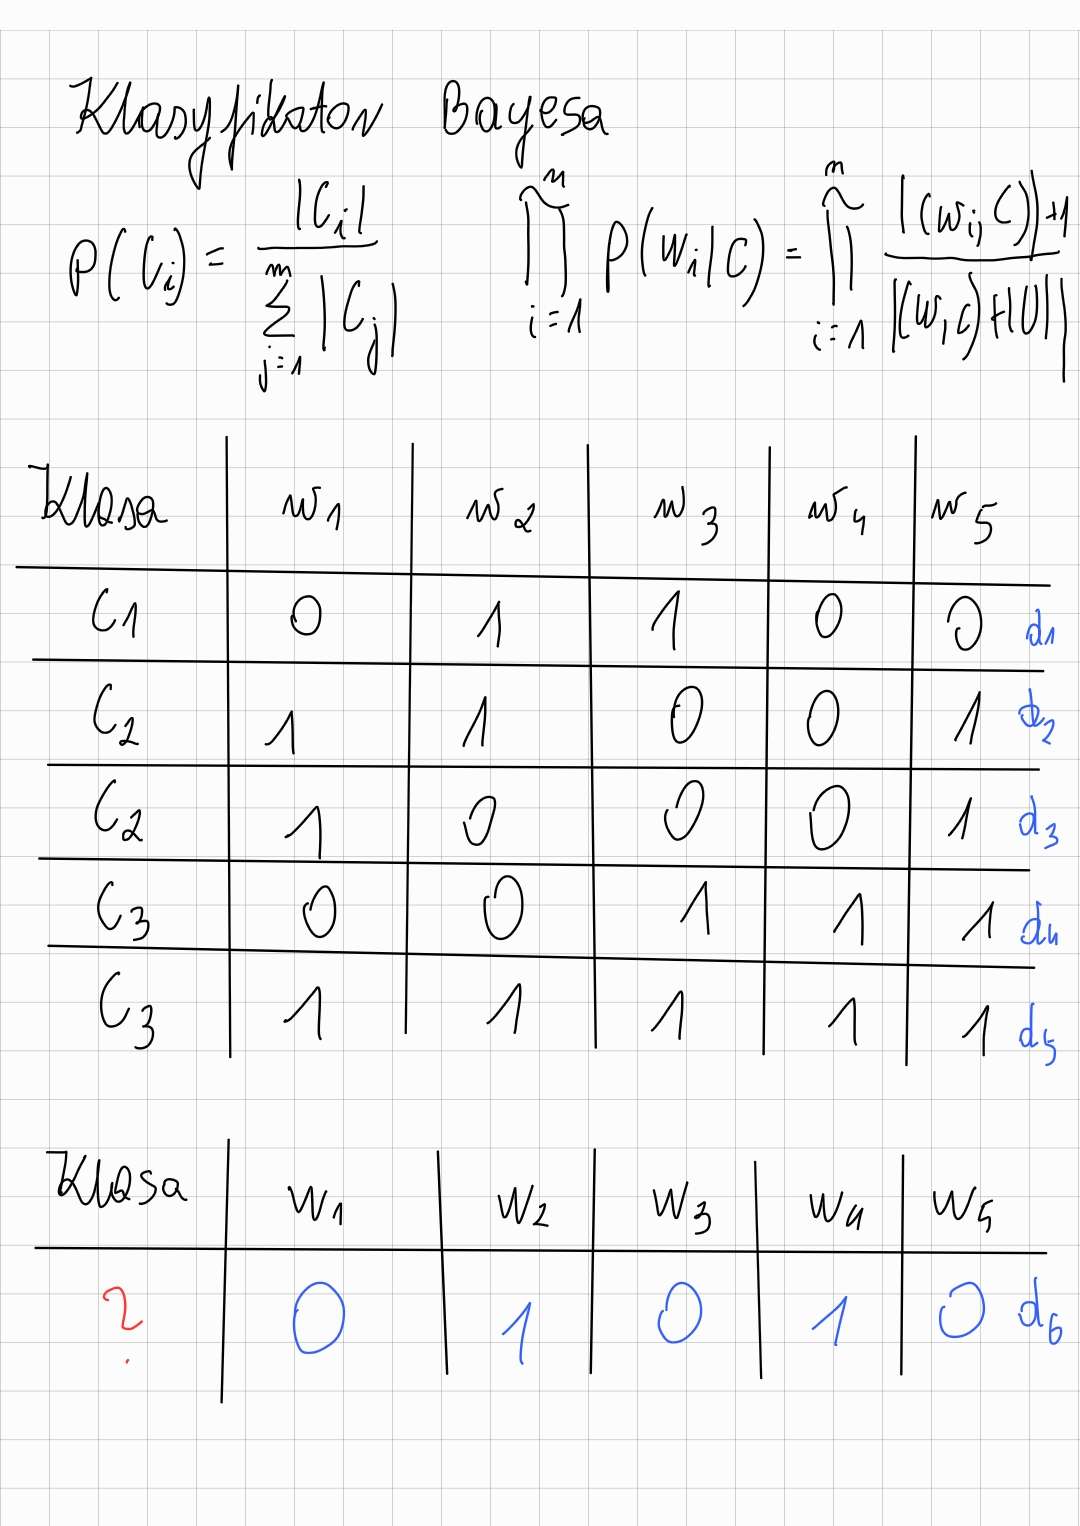 Klasyfikator Bayesa
P(Ci) = |Ci| / m Σ j=1 |Cj| n ∏ i=1 P(wi|C) = n ∏ i=1 |(wi, C)|+1 / |(w, C)+|U||
Klasa w1 w2 w3 w4 w5
C1 0 1 1 0 0 d1
C2 1 1 0 0 1 d2
C2 1 0 0 0 1 d3
C3 0 0 1 1 1 d4
C3 1 1 1 1 1 d5
Klasa w1 w2 w3 w4 w5
? 0 1 0 1 0 d6